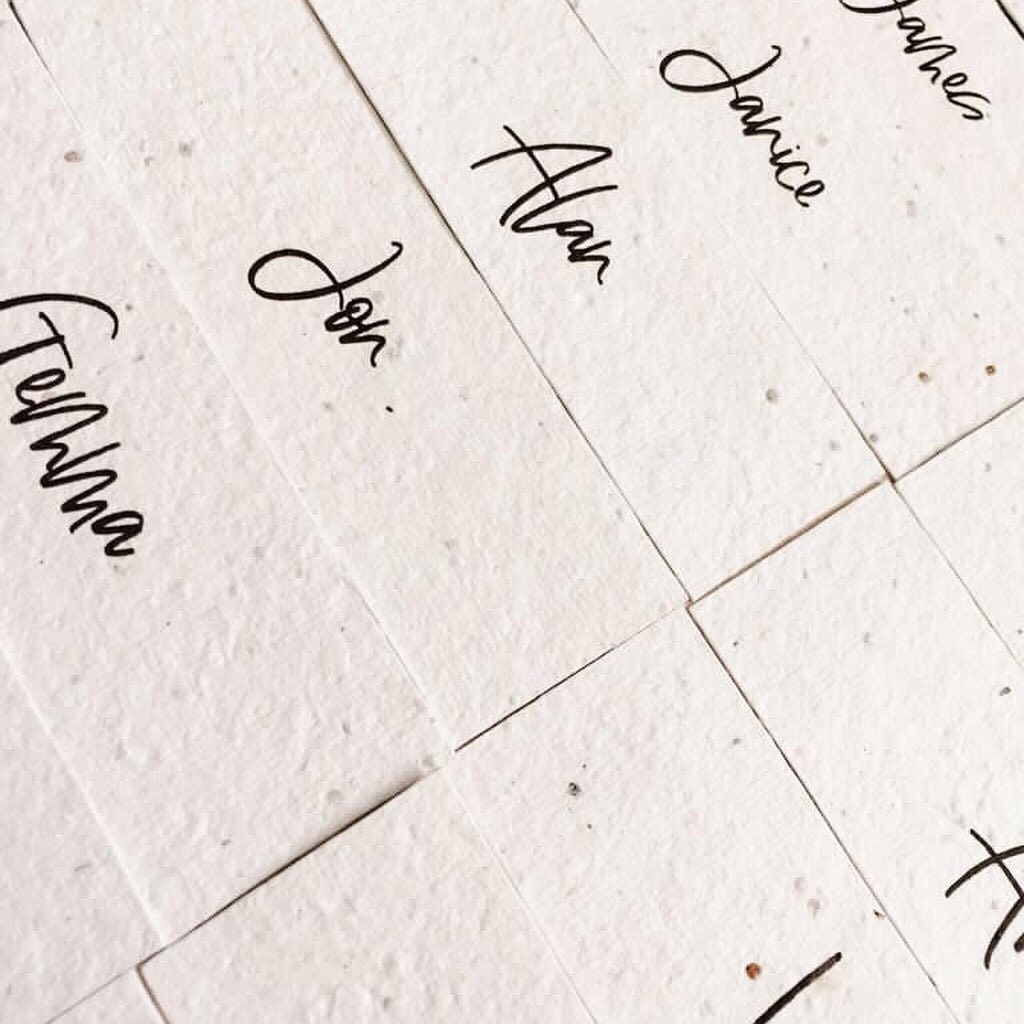 James
Janice
Alan
Jon
Gemma